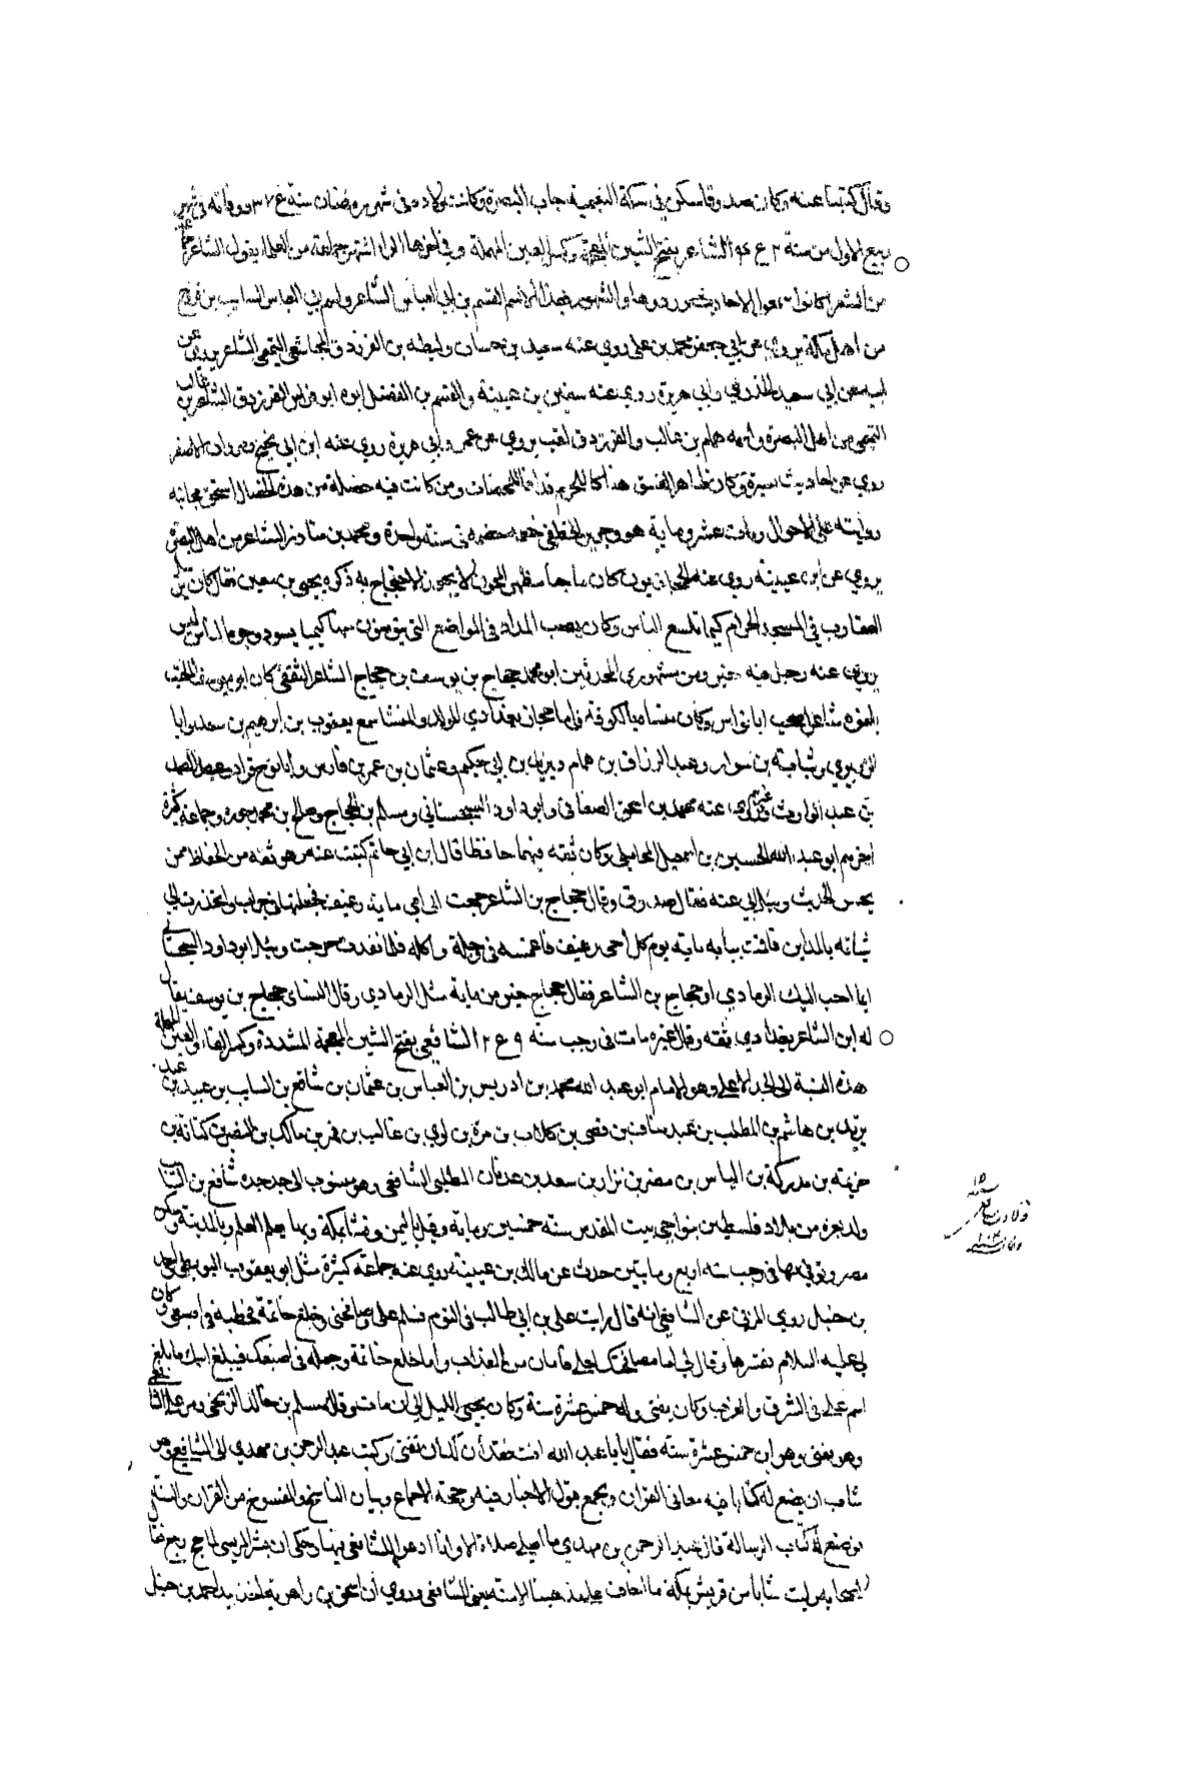 وقال كتبنا عنه وكان صدوقا سكن في سكة النعيمية جاب البصرة وكانت ولادته في شهر رمضان سنة ووفاته في شهر
ربيع الاول من سنة الشاعر بفتح الشين المعجمة وكسر العين المهملة وفي اخرها الراء اشتهر جماعة من العلماء بقول الشاعر
من الشعراء كانوا سمعوا الاحاديث ورووها والمشهور بهذا الاسم القسم بن ابي العباس الشاعر واسم ابي العباس السايب بن فروخ
من اهل مكة يروي عن ابي جعفر محمد بن علي روي عنه سعيد بن حسان ولبطه بن الفرزدق المجاشعي التميمي الشاعر يروي عن
ابيه عن ابي سعيد الخدري وابي هريرة روي عنه سفين بن عيينة والقسم بن الفضل ابوه ابو فراس الفرزدق الشاعر بن غالب
التميمي من اهل البصرة واسمه همام بن غالب والفرزدق لقب يروي عن عمر وابي هريرة روي عنه ابن ابي نجيح ومروان الاصفر
روي عن احاديث يسيرة وكان ظاهر الفسق هتاكا للحرم قذافا للمحصنات ومن كانت فيه خصلة من هذه الخصال استحق مجانبة
روايته على الاحوال ومات عشر وماية هو وجرير الخطفي في سنة واحدة ومحمد بن مناذر الشاعر من اهل البصرة
يروي عن ابن عيينة روي عنه كان ماجنا مظهر المجون لا يجوز الاحتجاج به ذكره يحيى بن معين فقال كان يرسل
العقارب في المسجد الحرام كيما تلسع الناس وكان يصب المداد في المواضع التي يتوضون منها كيما يسود وجوه الناس ليس
يروي عنه رجل فيه خير ومن مشهوري المحدثين ابو محمد حجاج بن يوسف بن حجاج الشاعر الثقفي كان ابو يوسف
شاعرا صحب ابا نواس وكان منشاه بالكوفة واما حجاج بغدادي المولد والمنشا سمع يعقوب بن ابرهيم بن سعد وابا
الزبيري وشبابة بن سوار وعبد الرزاق بن همام ويزيد بن ابي حكيم وعثمان بن عمر بن فارس وابا نوح قراد وعبد الصمد
بن عبد الوارث وغيرهم روي عنه محمد بن اسحق الصغاني وابو داود السجستاني ومسلم بن الحجاج وصالح بن محمد جزرة وجماعة كثيرة
اخرهم ابو عبد الله الحسين بن اسمعيل المحاملي وكان ثقة فهما حافظا قال ابن ابي حاتم كتبت عنه وهو ثقة من الحفاظ ممن
يحسن الحديث وسئل ابي عنه فقال صدوق وقال حجاج بن الشاعر جمعت لي امي ماية رغيف فجعلتها في جراب وانحدرت الي
شبابة بالمداين فاقمت ببابه ماية يوم كل يوم اجي برغيف فاغمسه في دجلة واكله فلما نفدت خرجت وسئل ابو داود السجستاني
ايما احب اليك الرمادي او حجاج بن الشاعر فقال حجاج خير من ماية مثل الرمادي وقال النساي حجاج بن يوسف يقال
له ابن الشاعر بغدادي ثقة وقال غيره مات في رجب سنة الشافعي بفتح الشين المعجمة المشددة وكسر الفاء والعين المهملة
هذه النسبة الى الجد الاعلى وهو الامام ابو عبد الله محمد بن ادريس بن العباس بن عثمان بن شافع بن السايب بن عبيد بن عبد
يزيد بن هاشم بن المطلب بن عبد مناف بن قصي بن كلاب بن مرة بن لوي بن غالب بن فهر بن مالك بن النضر بن كنانة بن
خزيمة بن مدركة بن الياس بن مضر بن نزار بن سعد بن عدنان المطلبي الشافعي وهو منسوب الى جد جده شافع بن السايب
ولد بغزه من بلاد فلسطين بنواحي بيت المقدس سنة خمسين وماية وقيل باليمن ونشا بمكة وبها تعلم العلم وبالمدينة وسكن
مصر وتوفي بها في رجب سنة اربع ومايتين حدث عن مالك بن عيينة روي عنه جماعة كثيرة مثل ابو يعقوب البويطي واحمد
بن حنبل روي المزني عن الشافعي انه قال رايت علي بن ابي طالب في النوم فسلم علي وصافحني وخلع خاتمه في اصبعي وكان
لي عليه السلام ففسرها وقال لي اما مصافحتك لعلي فامان من العذاب واما خلع خاتمة وجعله في اصبعك فيبلغ اسمك ما بلغ
اسم علي في الشرق والغرب وكان يفتي وله خمس عشرة سنة وكان يحيى الليل الى ان مات وقال مسلم بن خالد الزنجي ومر على الشافعي
وهو يفتي وهو ابن خمس عشرة سنة فقال يا با عبد الله افت فقد آن لك ان تفتي وكتب عبد الرحمن بن مهدي الى الشافعي وهو
شاب ان يضع له كتابا فيه معاني القران ويجمع قبول الاخبار فيه وحجة الاجماع وبيان الناسخ والمنسوخ من القران والسنة
فوضع له كتاب الرسالة قال عبد الرحمن بن مهدي ما اصلي صلاة الا وانا ادعو للشافعي فيها وحكى ان بشر المريسي لما حج رجع فقال
لاصحابه رايت شابا من قريش بمكة ما اخاف على مذهبنا الا منه يعني الشافعي وروي ان اسحق بن راهويه اخذ بيد احمد بن حنبل